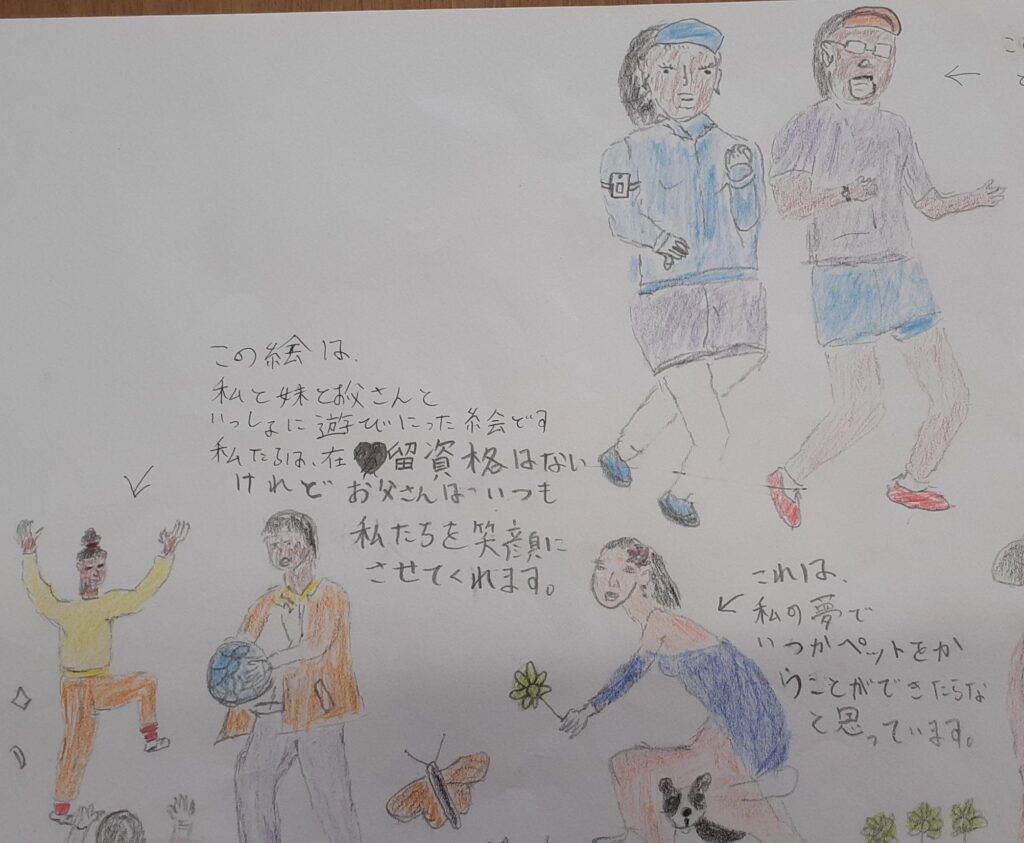 この絵は、
私と妹とお父さんと
いっしょに遊びにった絵です
私たるは、在留資格はない
けれど お父さんはいつも
私たちを笑顔に
させてくれます。
これは、
私の夢で
いつかペットをか
うことができたらな
と思っています。
こ